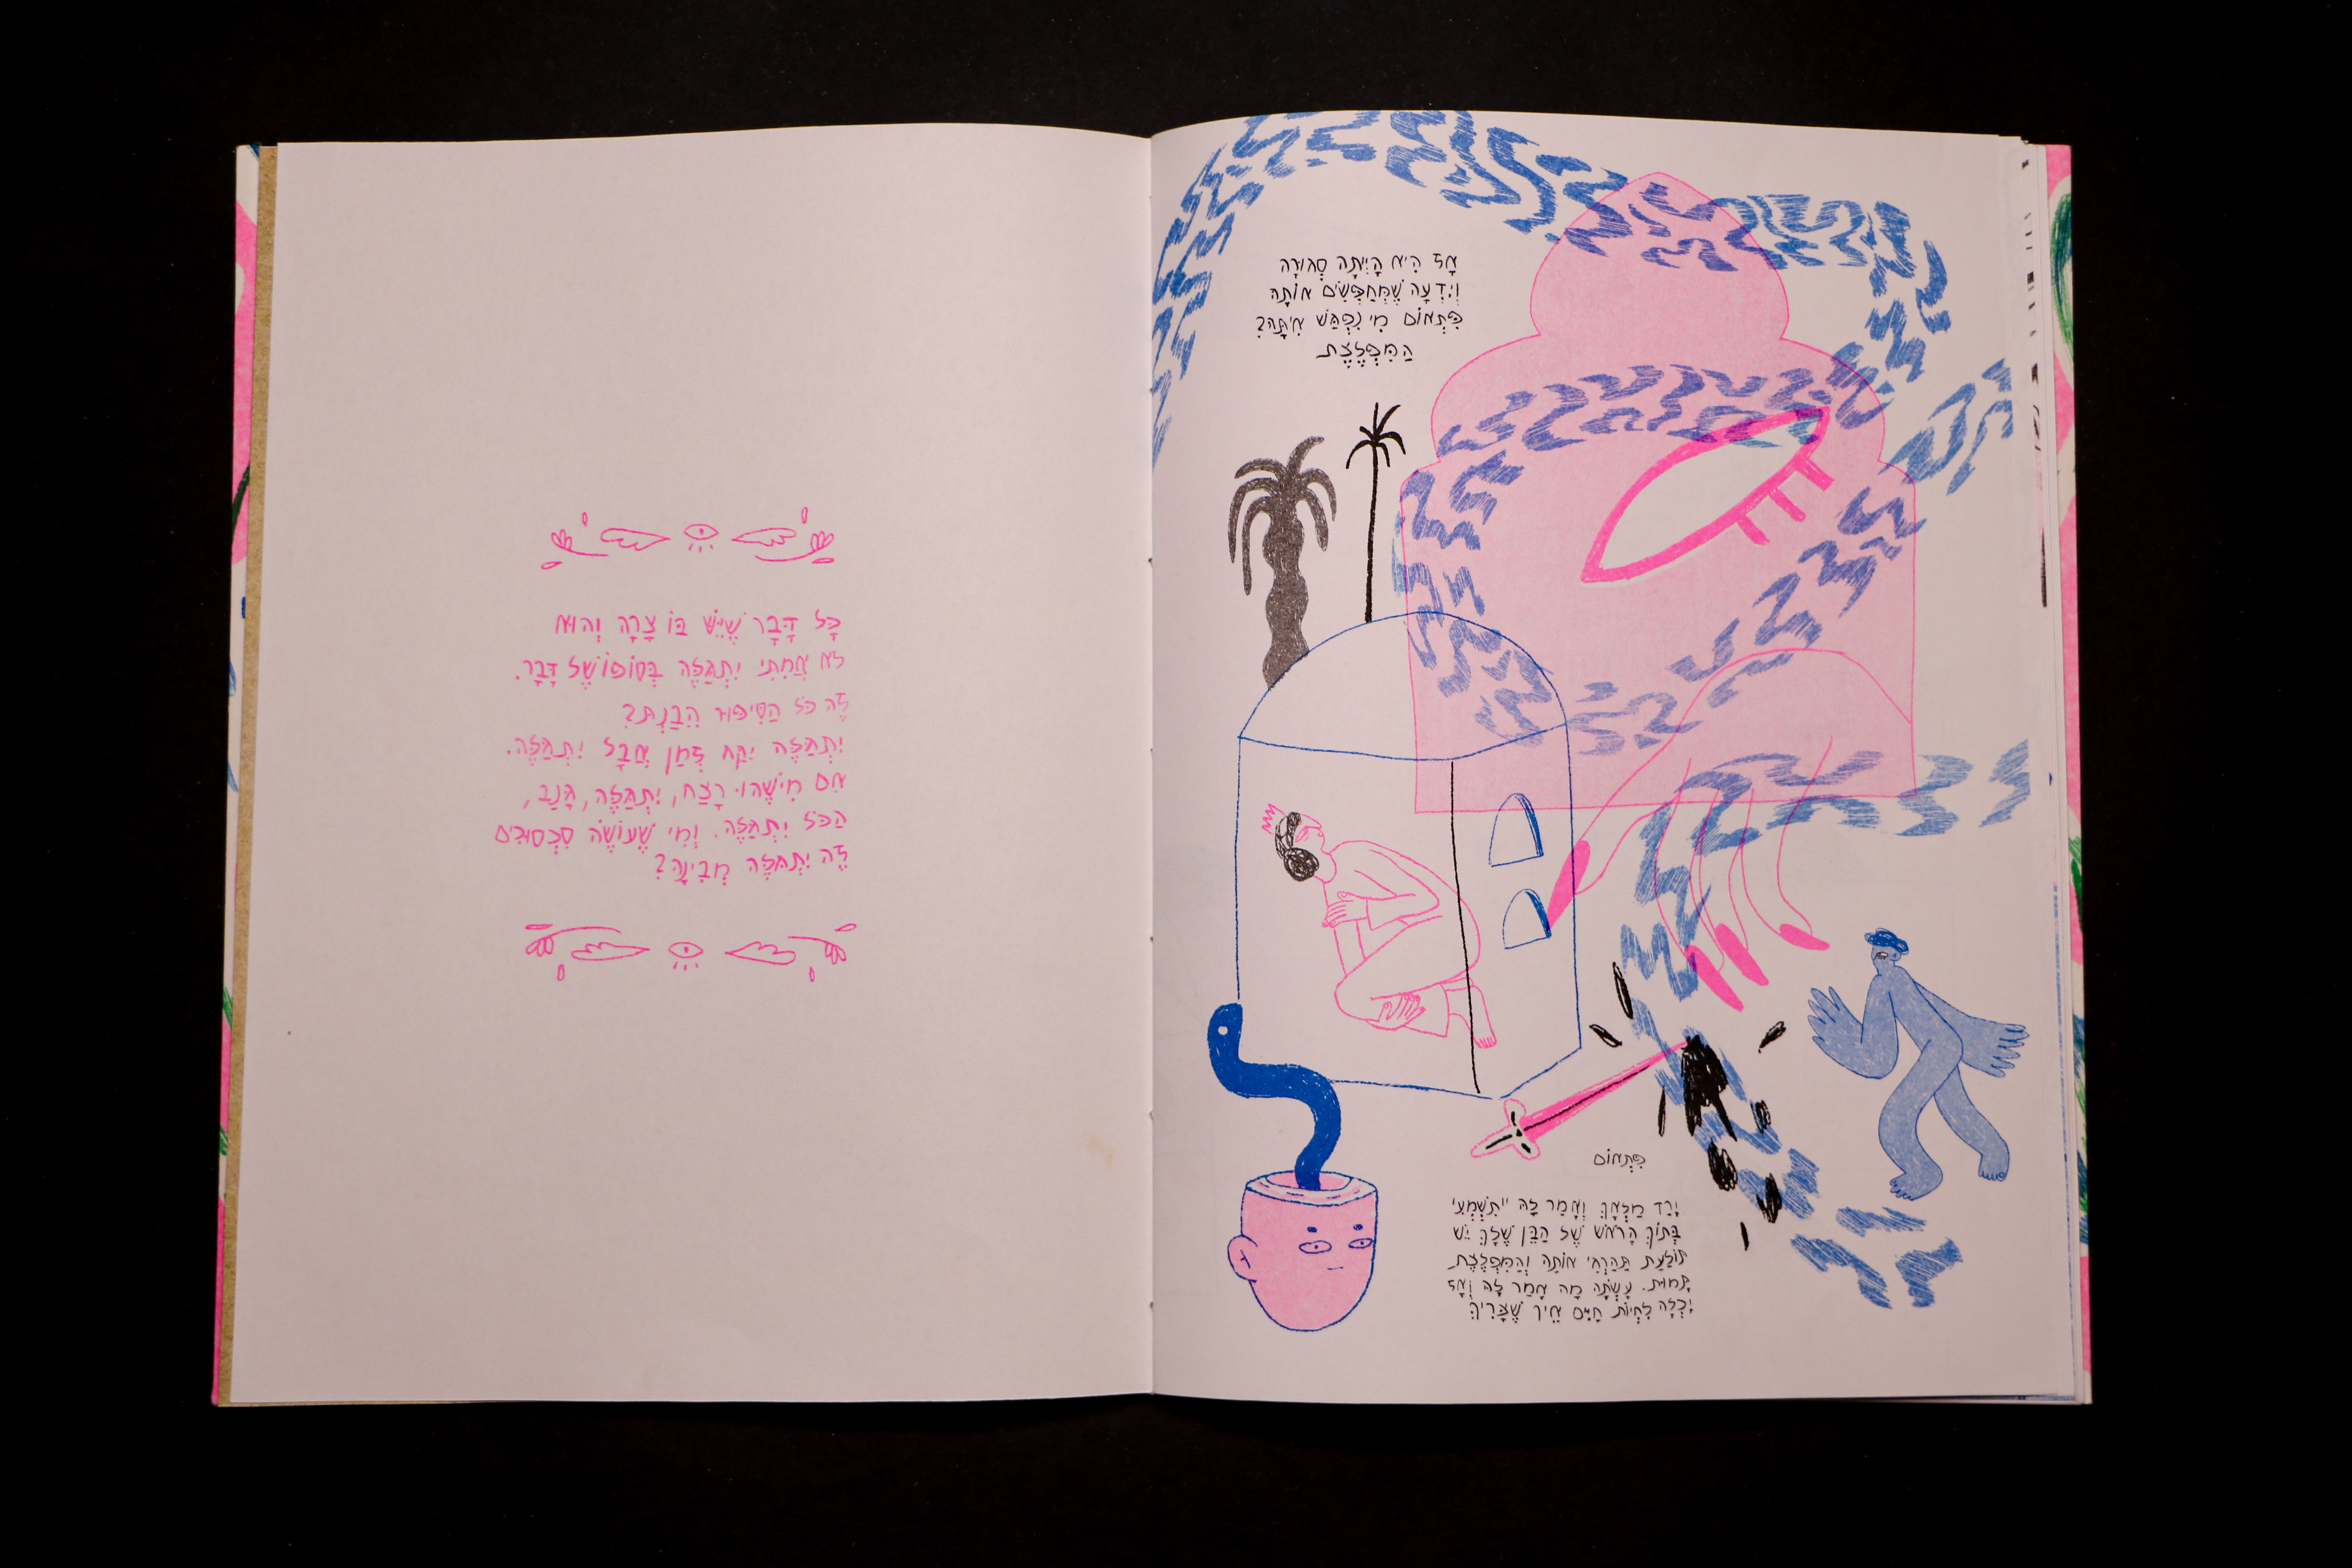 כָּל דָּבָר שֶׁיֵּשׁ בּוֹ צָרָה וְהוּא
לֹא אֲמִתִּי יִתְגַּלֶּה בְּסוֹפוֹ שֶׁל דָּבָר.
זֶה כֹּל הַסִּיפּוּר הֵבַנְתְּ?
יִתְגַּלֶּה יִקַּח זְמַן אֲבָל יִתְגַּלֶּה.
אִם מִישֶׁהוּ רָצַח, יִתְגַּלֶּה, גָּנַב,
הַכֹּל יִתְגַּלֶּה. וְמִי שֶׁעוֹשֶׂה סִכְסוּכִים
זֶה יִתְגַּלֶּה מְבִינָה?
אָז הִיא הָיְתָה סְגוּרָה
וְיָדְעָה שֶׁמְּחַפְּשִׂים אוֹתָהּ
פִּתְאוֹם מִי נִפְגַּשׁ אִיתָּהּ?
הַמִּפְלֶצֶת
פִּתְאוֹם
יָרַד מַלְאָךְ וְאָמַר לָהּ "תִּשְׁמְעִי
בְּתוֹךְ הָרֹאשׁ שֶׁל הַבֵּן שֶׁלָּךְ יֵשׁ
תּוֹלַעַת תַּהַרְגִי אוֹתָהּ וְהַמִּפְלֶצֶת
תָּמוּת. עָשְׂתָה מָה אָמַר לָהּ וְאָז
יָכְלָה לִחְיוֹת חַיִּים אֵיךְ שֶׁצָּרִיךְ